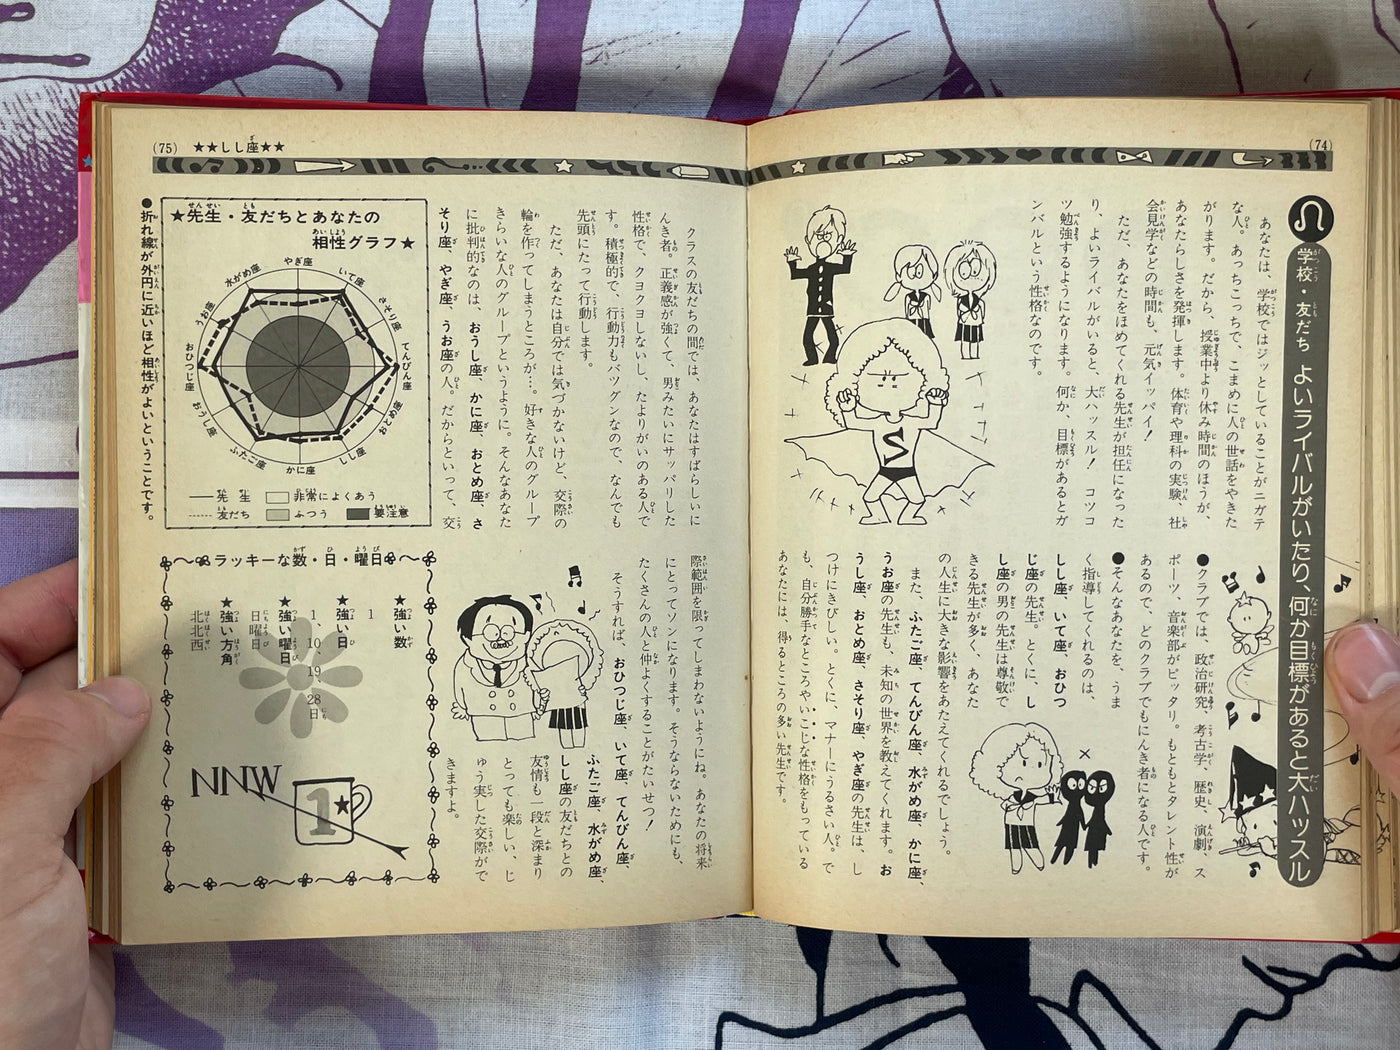 (74)
学校・友だち よいライバルがいたり、何か目標があると大ハッスル
あなたは、学校ではジッとしていることがニガテ
な人。あっちこっちで、こまめに人の世話をやきた
がります。だから、授業中より休み時間のほうが、
あなたらしさを発揮します。体育や理科の実験、社
会見学などの時間も、元気イッパイ！
ただ、あなたをほめてくれる先生が担任になった
り、よいライバルがいると、大ハッスル！ コツコ
ツ勉強するようになります。何か、目標があるとガ
ンバルという性格なのです。
S
●クラブでは、政治研究、考古学、歴史、演劇、ス
ポーツ、音楽部がピッタリ。もともとタレント性が
あるので、どのクラブでもにんき者になる人です。
●そんなあなたを、うま
く指導してくれるのは、
しし座、いて座、おひつ
じ座の先生。とくに、し
し座の男の先生は尊敬で
きる先生が多く、あなた
の人生に大きな影響をあたえてくれるでしょう。
また、ふたご座、てんびん座、水がめ座、かに座、
うお座の先生も、未知の世界を教えてくれます。お
うし座、おとめ座、さそり座、やぎ座の先生は、し
つけにきびしい。とくに、マナーにうるさい人。で
も、自分勝手なところやいこじな性格をもっている
あなたには、得るところの多い先生です。
(75) ★★しし座★★
クラスの友だちの間では、あなたはすばらしいに
んき者。正義感が強くて、男みたいにサッパリした
性格で、クヨクヨしないし、たよりがいのある人で
す。積極的で、行動力もバツグンなので、なんでも
先頭にたって行動します。
ただ、あなたは自分では気づかないけど、交際の
輪を作ってしまうところが…。好きな人のグループ
きらいな人のグループというように。そんなあなた
に批判的なのは、おうし座、かに座、おとめ座、さ
そり座、やぎ座、うお座の人。だからといって、交
際範囲を限ってしまわないようにね。あなたの将来
にとってソンになります。そうならないためにも、
たくさんの人と仲よくすることがたいせつ！
そうすれば、おひつじ座、いて座、てんびん座、
ふたご座、水がめ座、
しし座の友だちとの
友情も一段と深まり
とっても楽しい、じ
ゅう実した交際がで
きますよ。
★先生・友だちとあなたの
相性グラフ★
やぎ座
いて座
さそり座
てんびん座
おとめ座
しし座
かに座
ふたご座
おうし座
おひつじ座
うお座
水がめ座
先生
友だち
非常によくあう
ふつう
要注意
●折れ線が外円に近いほど相性がよいということです。
ラッキーな数・日・曜日
★強い数
1
★強い日
1、10、19、28日
★強い曜日
日曜日
★強い方角
北北西
NNW
1